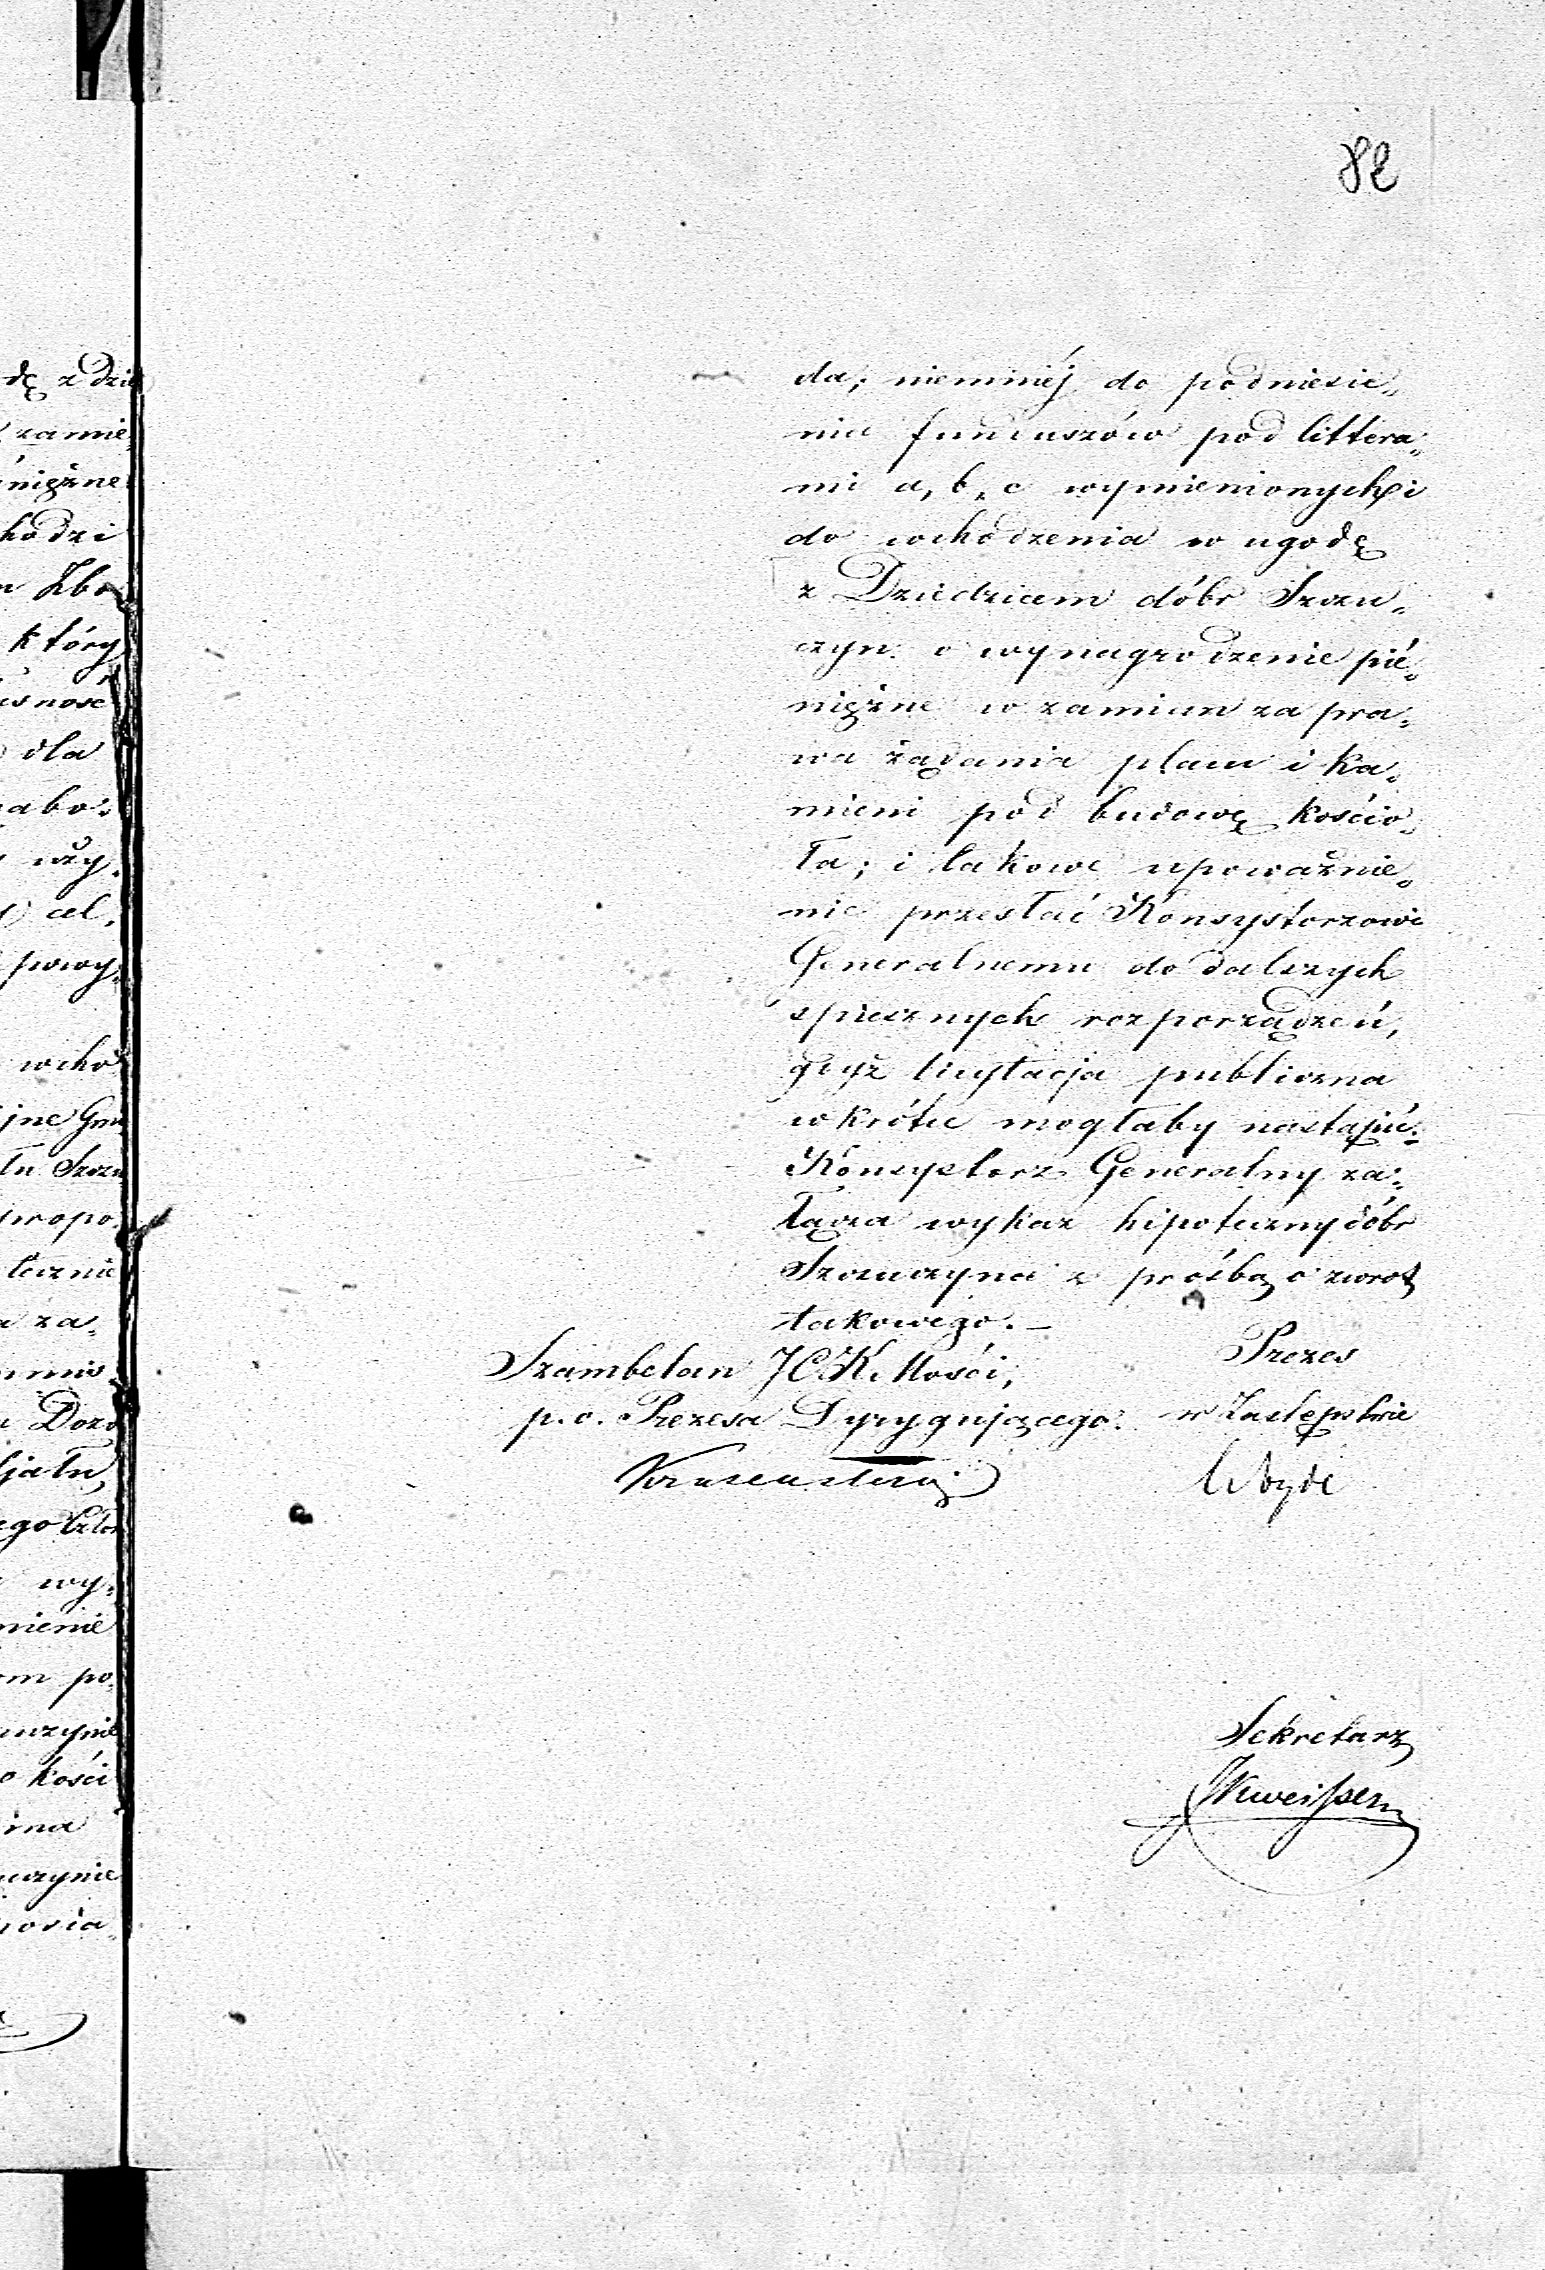 82
da; niemniéj do podniesie„
nia funduszów pod littera„
mi a, b, c wymienionych, i
do wchodzenia w ugodę
z Dziedzicem dóbr Szczu„
czyn o wynagrodzenie pié„
niężne w zamian za pra„
wa żądania placu i ka„
mieni pod budowę kościo„
ła; i takowe upoważnie„
nie przesłać Konsystorzowi
Generalnemu do dalszych
śpiesznych rozporządzeń,
gdyż licytacja publiczna
wkrótce mogłaby nastąpić.
Konsystorz Generalny za„
łącza wykaz hipoteczny dóbr
Szczuczyna z prośbą o zwrot
takowego.—
Szambelan JCK. Mości,
p.o. Prezesa Dyrygującego.
Prezes
w Zastępstwie
Sekretarz
dę z dzie
zamie„
niężne
hodzi
który
dla
wży„
cel„
powy„
wcho
propo„
a za„
Dozo
wy„
mienie
om po„
o kości